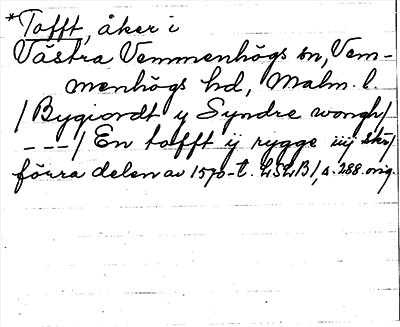 *Tofft, åker i
Västra Vemmenhögs sn, Vem-
menhögs hd, Malm. l.
/Bygiordt y Syndre wongh/
---/ En tofft ij rygge iiij skr/
förra delen av 1570-t. LSLB1, s. 288. orig.